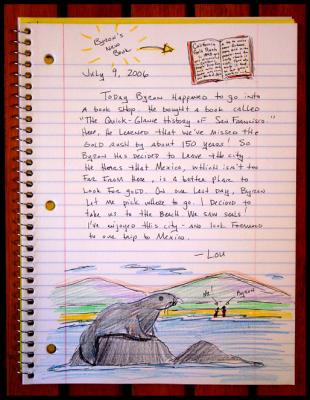 Byron's
New
Book
California
Gold Rush
July 9, 2006
Today Byron happened to go into
a book shop. He bought a book called
"The Quick-Glance History of San Francisco."
Here, he learned that we've missed the
gold rush by about 150 years! So
Byron has decided to leave the city.
He hopes that Mexico, which isn't too
far from here, is a better place to
look for gold. On our last day, Byron
let me pick where to go. I decided to
take us to the beach. We saw seals!
I've enjoyed this city - and look forward
to our trip to Mexico.
- Lou
Me!
Byron